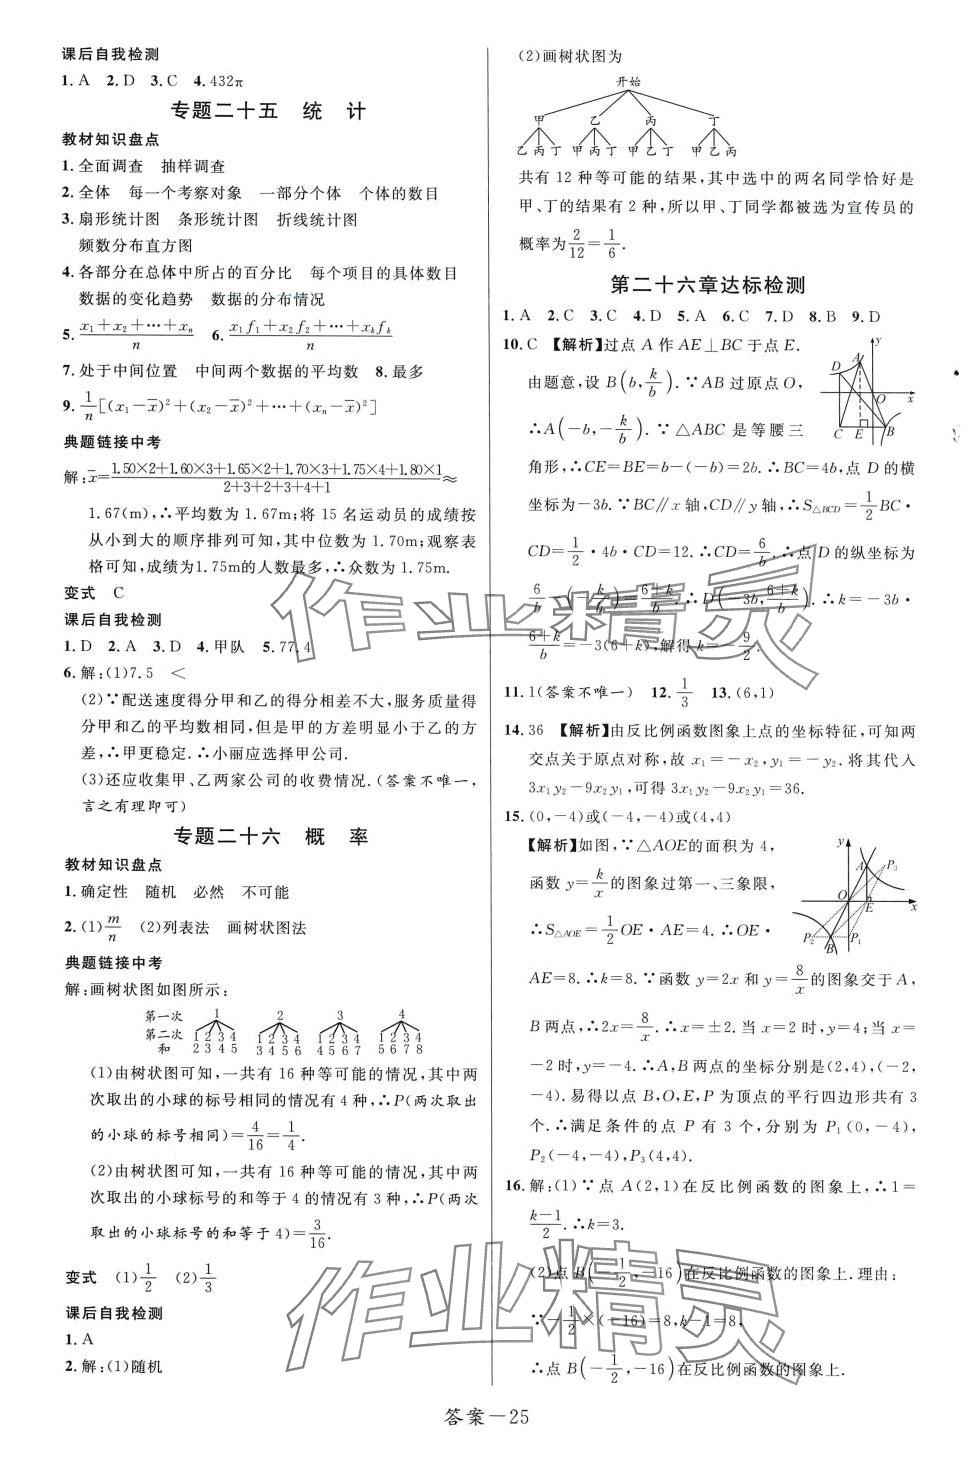 课后自我检测
1. A　2. D　3. C　4. 432π
专题二十五　统　计
教材知识盘点
1. 全面调查　抽样调查
2. 全体　每一个考察对象　一部分个体　个体的数目
3. 扇形统计图　条形统计图　折线统计图
频数分布直方图
4. 各部分在总体中所占的百分比　每个项目的具体数目
数据的变化趋势　数据的分布情况
5. (x₁+x₂+⋯+xₙ)/n　6. (x₁f₁+x₂f₂+⋯+xₖfₖ)/n
7. 处于中间位置　中间两个数据的平均数　8. 最多
9. 1/n[(x₁-x̄)²+(x₂-x̄)²+⋯+(xₙ-x̄)²]
典题链接中考
解:x̄=(1.50×2+1.60×3+1.65×2+1.70×3+1.75×4+1.80×1)/(2+3+2+3+4+1)≈
1.67(m),∴平均数为 1.67m;将 15 名运动员的成绩按
从小到大的顺序排列可知,其中位数为 1.70m;观察表
格可知,成绩为1.75m的人数最多,∴众数为 1.75m.
变式　C
课后自我检测
1. D　2. A　3. D　4. 甲队　5. 77.4
6. 解:(1)7.5　<
(2)∵配送速度得分甲和乙的得分相差不大,服务质量得
分甲和乙的平均数相同,但是甲的方差明显小于乙的方
差,∴甲更稳定.∴小丽应选择甲公司.
(3)还应收集甲、乙两家公司的收费情况.(答案不唯一,
言之有理即可)
专题二十六　概　率
教材知识盘点
1. 确定性　随机　必然　不可能
2. (1)m/n　(2)列表法　画树状图法
典题链接中考
解:画树状图如图所示:
第一次　1　2　3　4
第二次　1 2 3 4　1 2 3 4　1 2 3 4　1 2 3 4
和　2 3 4 5　3 4 5 6　4 5 6 7　5 6 7 8
(1)由树状图可知,一共有 16 种等可能的情况,其中两
次取出的小球的标号相同的情况有 4 种,∴P(两次取出
的小球的标号相同)=4/16=1/4.
(2)由树状图可知,一共有 16 种等可能的情况,其中两
次取出的小球标号的和等于 4 的情况有 3 种,∴P(两次
取出的小球标号的和等于 4)=3/16.
变式　(1)1/2　(2)1/3
课后自我检测
1. A
2. 解:(1)随机
(2)画树状图为
开始
甲　乙　丙　丁
乙 丙 丁　甲 丙 丁　甲 乙 丁　甲 乙 丙
共有 12 种等可能的结果,其中选中的两名同学恰好是
甲、丁的结果有 2 种,所以甲、丁同学都被选为宣传员的
概率为2/12=1/6.
第二十六章达标检测
1. A　2. C　3. C　4. D　5. A　6. C　7. D　8. B　9. D
10. C　【解析】过点 A 作 AE⊥BC 于点 E.
由题意,设 B(b,k/b).∵AB 过原点 O,
∴A(-b,-k/b).∵△ABC 是等腰三
角形,∴CE=BE=b-(-b)=2b.∴BC=4b,点 D 的横
坐标为-3b.∵BC∥x 轴,CD∥y 轴,∴S△BCD=1/2BC·
CD=1/2·4b·CD=12.∴CD=6/b.∴点 D 的纵坐标为
6/b-(-k/b)=(6+k)/b.∴D(-3b,(6+k)/b).∴k=-3b·
(6+k)/b=-3(6+k),解得 k=-9/2.
y
D A
O x
C E B
11. 1(答案不唯一)　12. 1/3　13. (6,1)
14. 36　【解析】由反比例函数图象上点的坐标特征,可知两
交点关于原点对称,故 x₁=-x₂,y₁=-y₂.将其代入
3x₁y₂-9x₂y₁,可得 3x₁y₂-9x₂y₁=36.
15. (0,-4)或(-4,-4)或(4,4)
【解析】如图,∵△AOE的面积为 4,
函数 y=k/x的图象过第一、三象限,
∴S△AOE=1/2OE·AE=4.∴OE·
AE=8.∴k=8.∵函数 y=2x 和 y=8/x的图象交于 A,
B 两点,∴2x=8/x.∴x=±2.当 x=2 时,y=4;当 x=
-2时,y=-4.∴A,B 两点的坐标分别为(2,4),(-2,
-4).易得以点 B,O,E,P 为顶点的平行四边形共有 3
个.∴满足条件的点 P 有 3 个,分别为 P₁(0,-4),
P₂(-4,-4),P₃(4,4).
y
A P₃
O E x
P₂ B P₁
16. 解:(1)∵点 A(2,1)在反比例函数的图象上,∴1=
(k-1)/2.∴k=3.
(2)点 B(-1/2,-16)在反比例函数的图象上.理由:
∵-1/2×(-16)=8,k-1=8.
∴点 B(-1/2,-16)在反比例函数的图象上.
作业精灵
作业精灵
答案－25